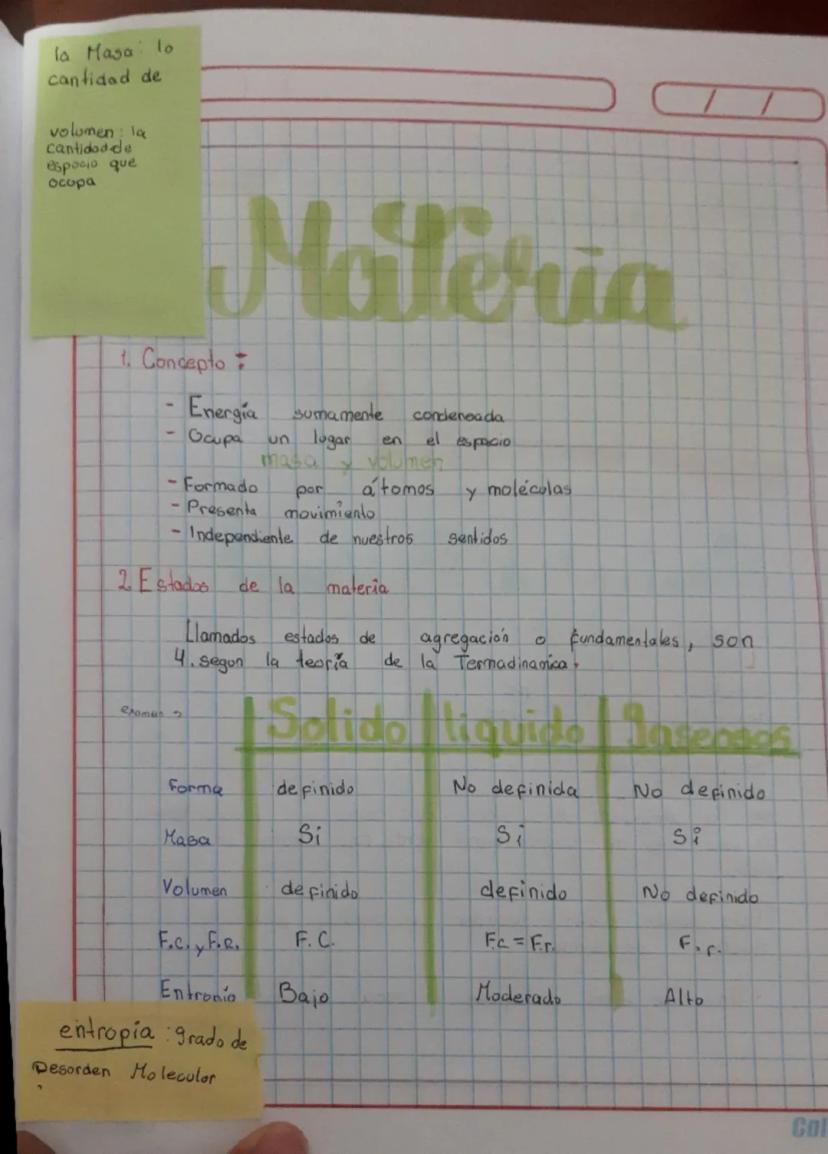 la Masa: lo
cantidad de
volumen: la
cantidad de
espacio que
ocupa
/ /
Materia
1. Concepto:
- Energía sumamente condensada
- Ocupa un lugar en el espacio
masa y volumen
- Formado por átomos y moléculas
- Presenta movimiento
- Independiente de nuestros sentidos
2 Estados de la materia
Llamados estados de agregación o fundamentales, son
4. segun la teoría de la Termadinamica.
examen Solido liquido gaseosos
Forma definido No definida No definido
Masa Si Si Si
Volumen definido definido No definido
F.C. y F.R. F.C. F.c = F.r. F.r.
Entropía Bajo Moderado Alto
entropía: grado de
Desorden Molecular
Col